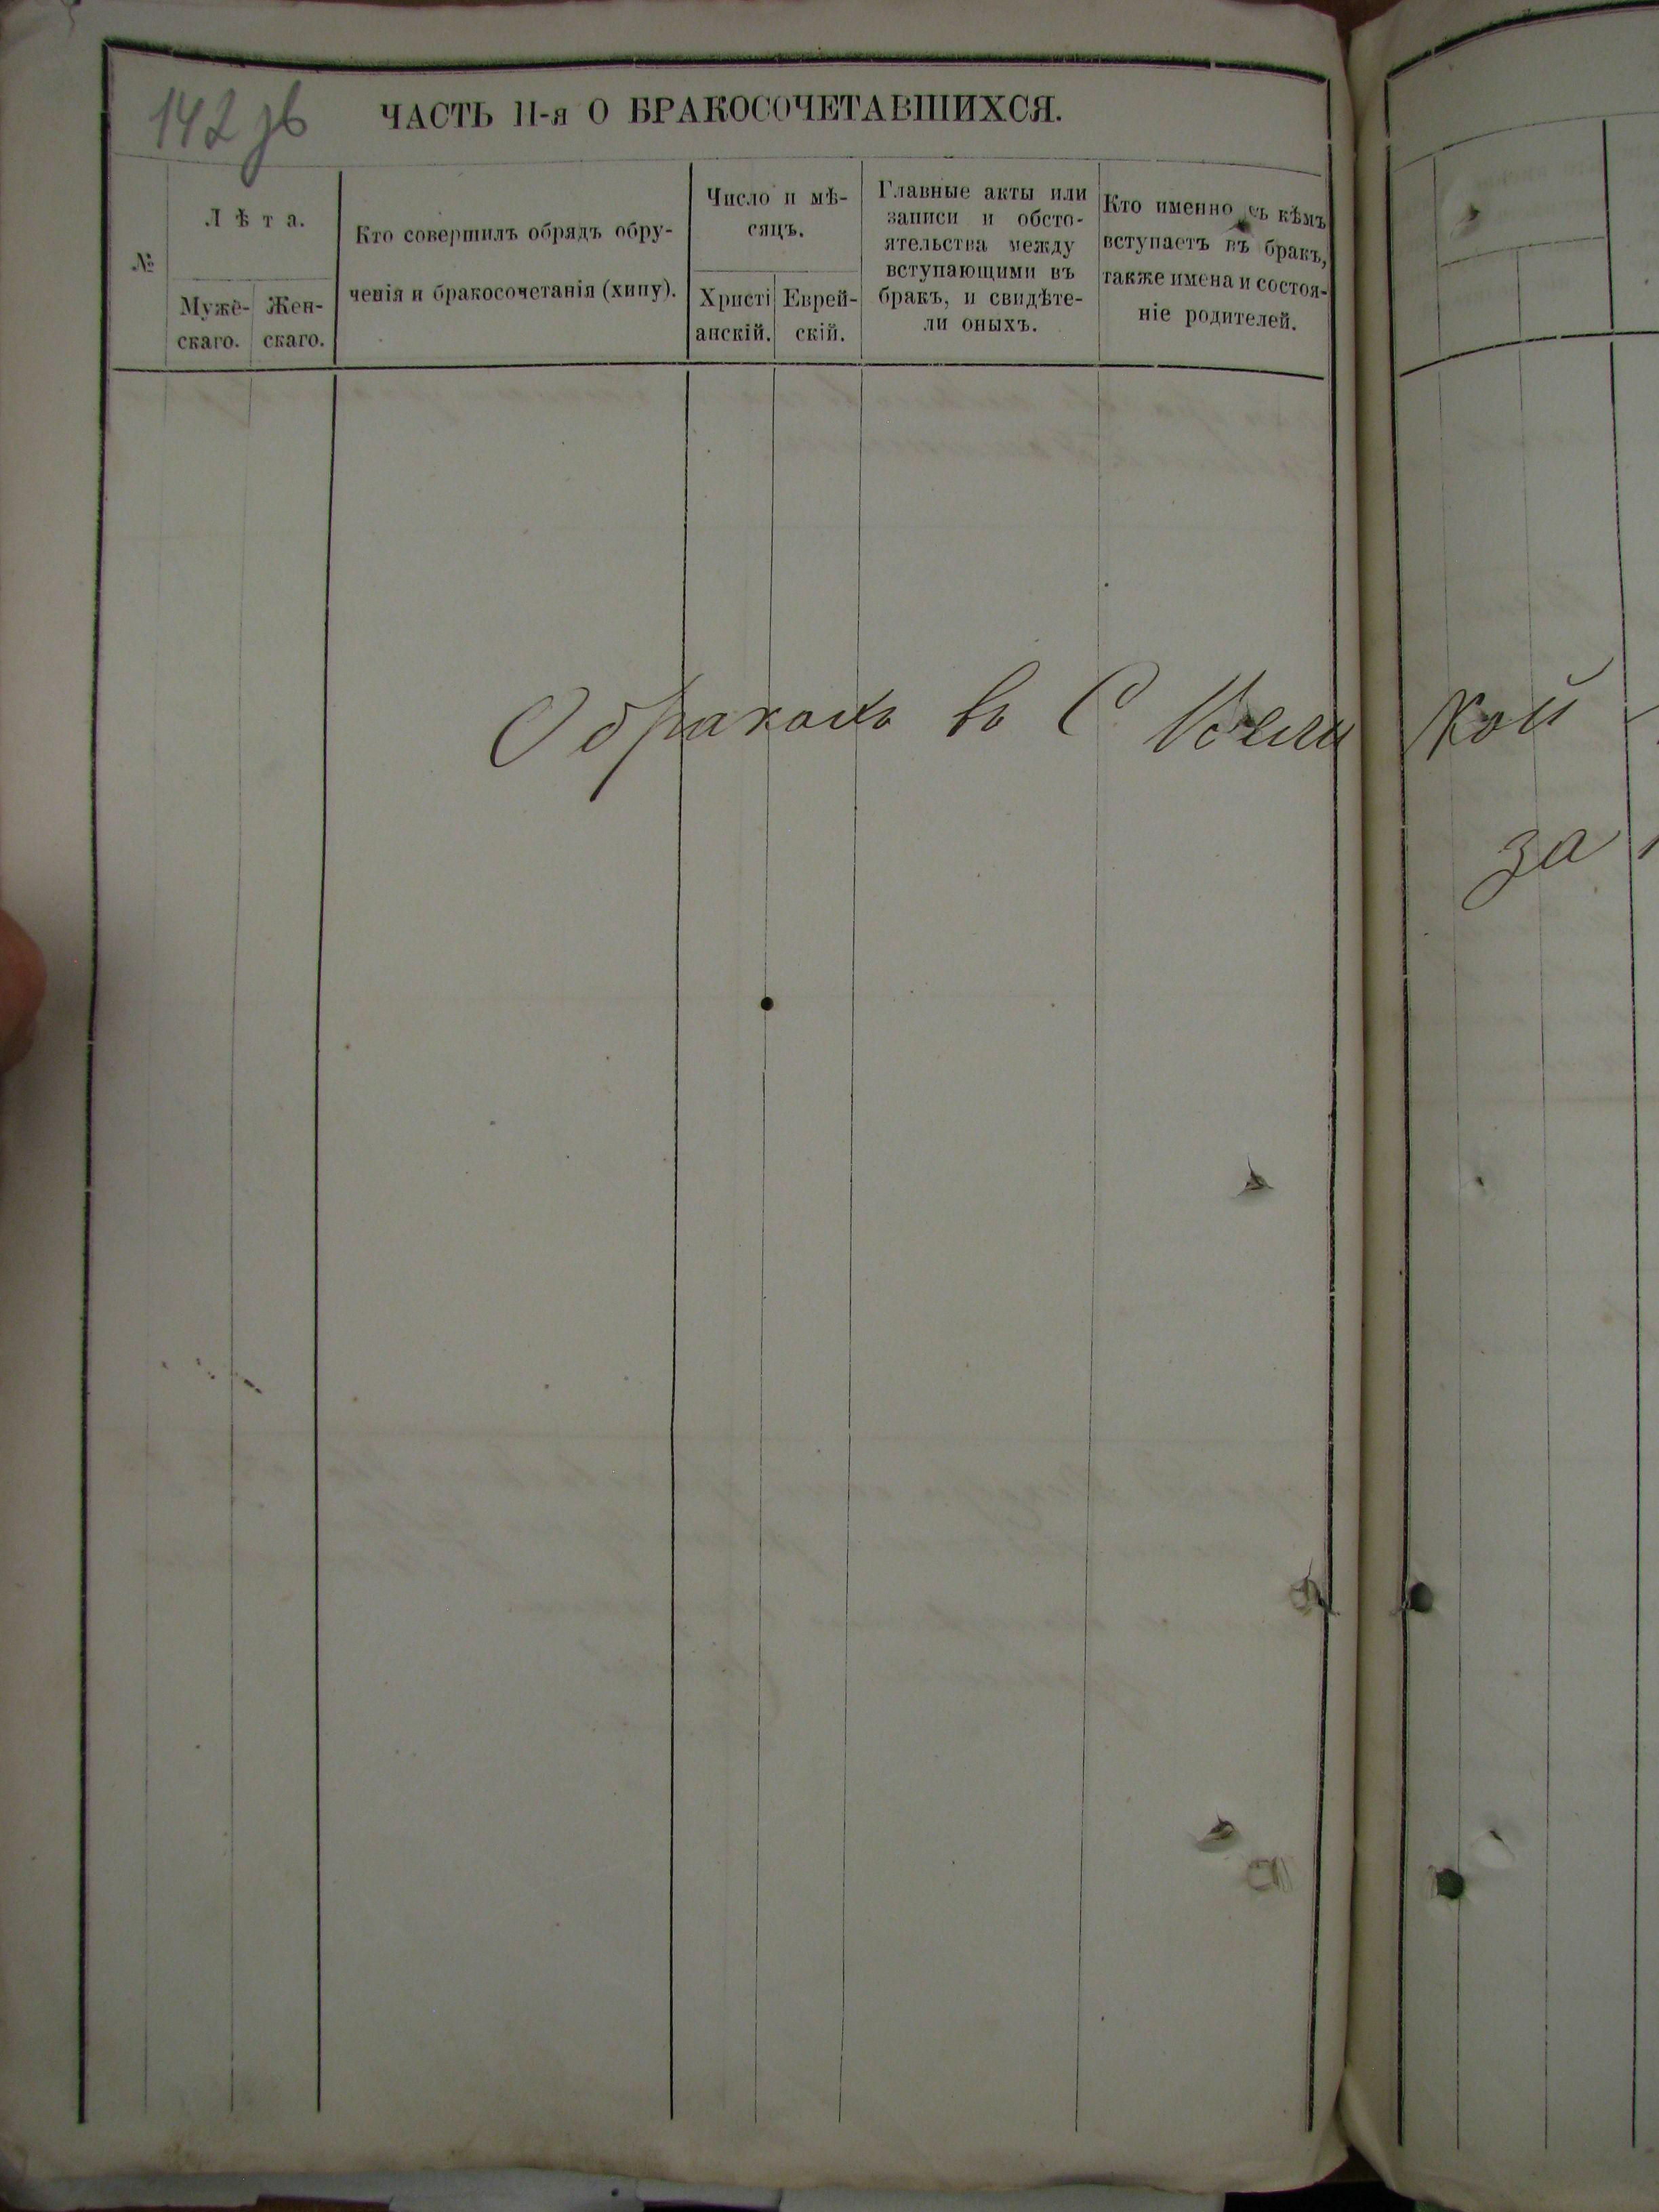 142 зв
ЧАСТЬ II-я О БРАКОСОЧЕТАВШИХСЯ.
№
Лѣта.
Мужескаго.
Женскаго.
Кто совершилъ обрядъ обру-
ченія и бракосочетанія (хипу).
Число и мѣ-
сяцъ.
Христі
анскій.
Еврей-
скій.
Главные акты или
записи и обсто-
ятельства между
вступающими въ
бракъ, и свидѣте-
ли оныхъ.
Кто именно съ кѣмъ
вступаетъ въ бракъ,
также имена и состоя-
ніе родителей.
О бракахъ въ С Вели кой
за